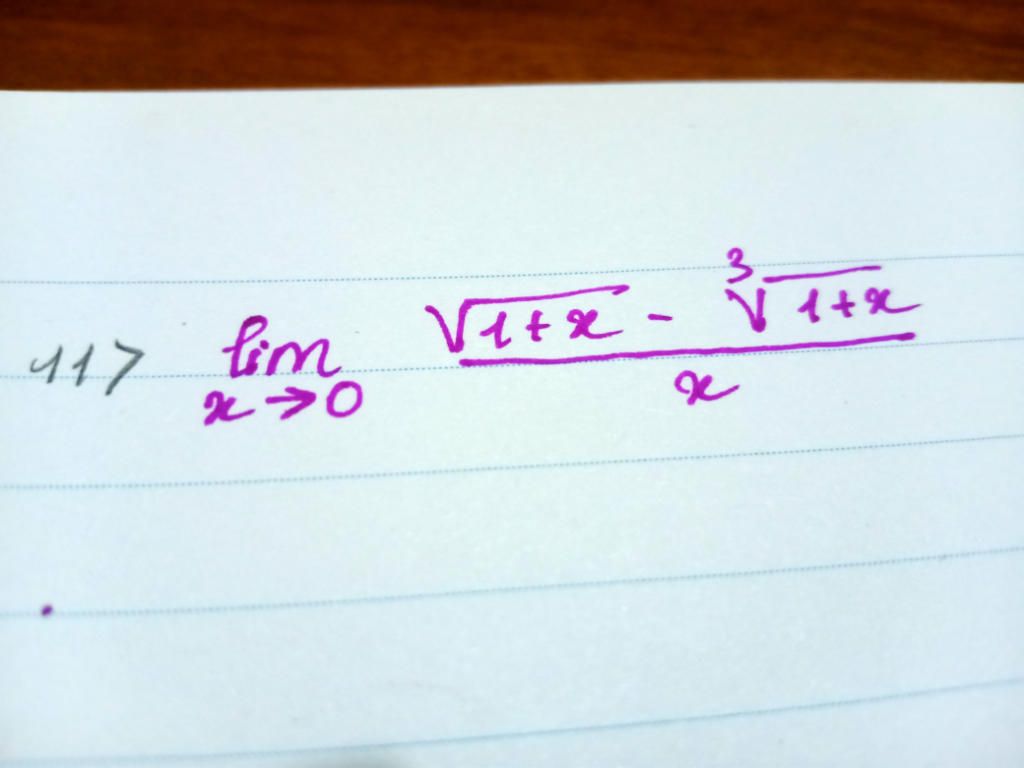 11> lim x→0 (√(1+x) - ∛(1+x)) / x